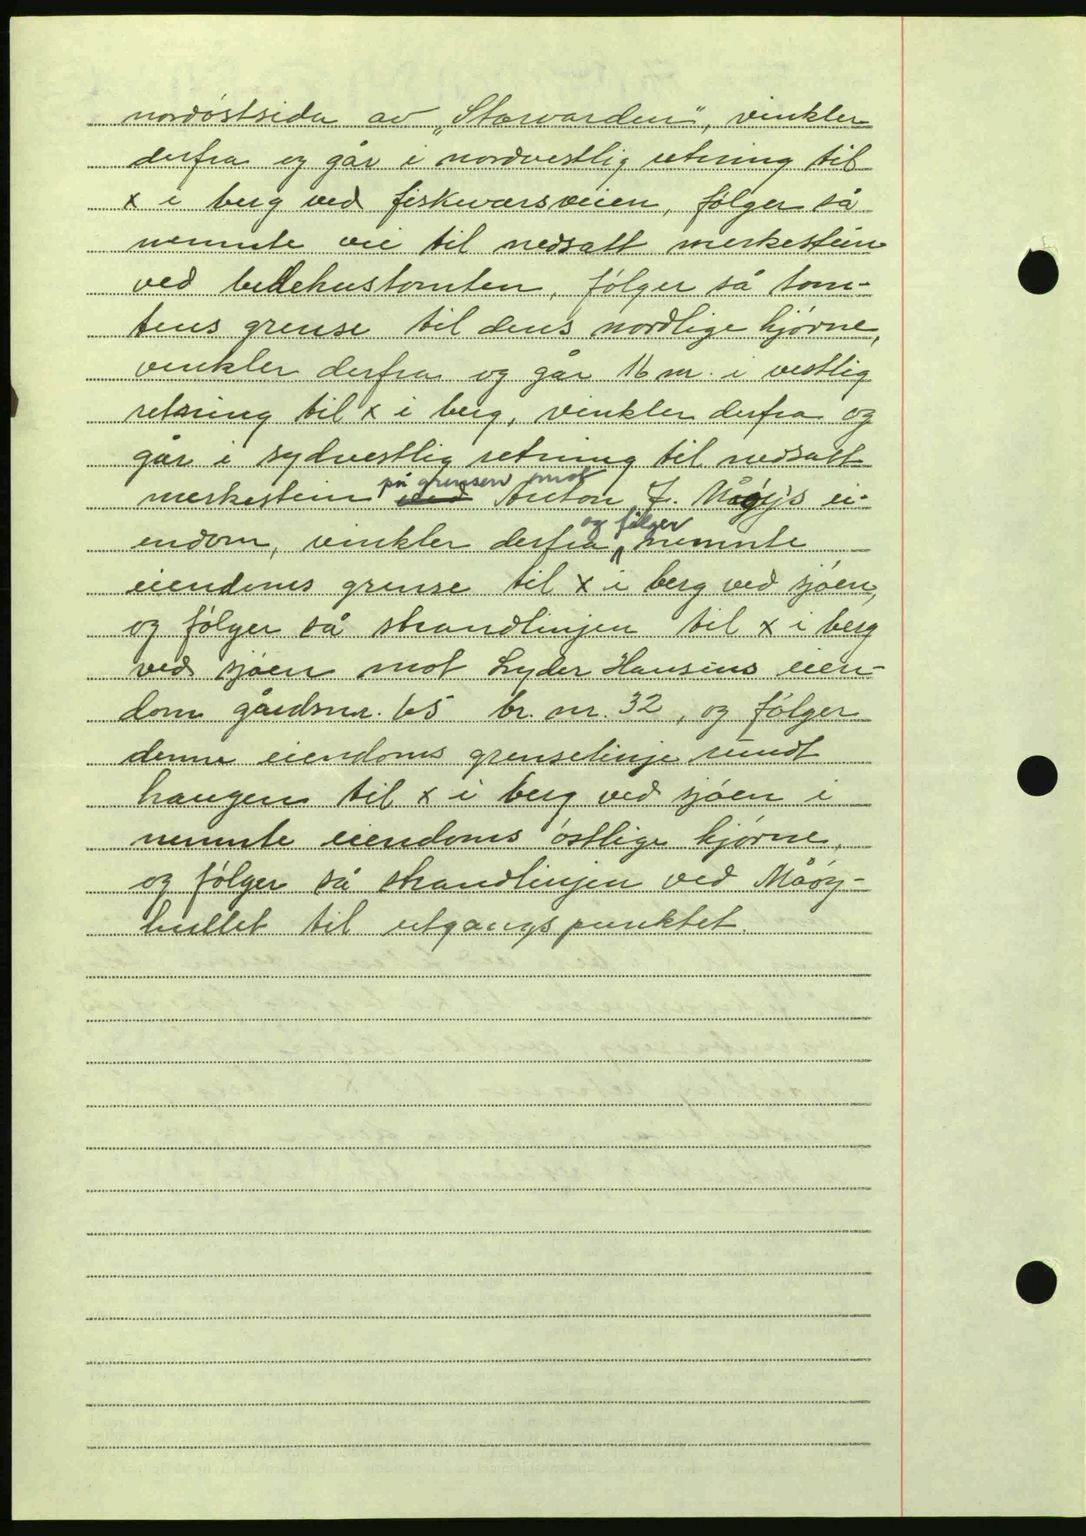 nordøstsida av „Storvarden", vinkler
derfra og går i nordvestlig retning til
x i berg ved fiskeværsveien, følger så
nemnte vei til nedsatt merkestein
ved bedehustomten, følger så tom-
tens grense til dens nordlige hjørne,
vinkler derfra og går 16 m. i vestlig
retning til x i berg, vinkler derfra og
går i sydvestlig retning til nedsatt
merkestein på grensen mot Anton J. Måøys ei-
endom, vinkler derfra og følger nemnte
eiendoms grense til x i berg ved sjøen,
og følger så strandlinjen til x i berg
ved sjøen mot Lyder Hansens eien-
dom gårdsnr. 65 br. nr. 32, og følger
denne eiendoms grenselinje rundt
haugen til x i berg ved sjøen i
nemnte eiendoms østlige hjørne,
og følger så strandlinjen ved Måøy-
hullet til utgangspunktet.